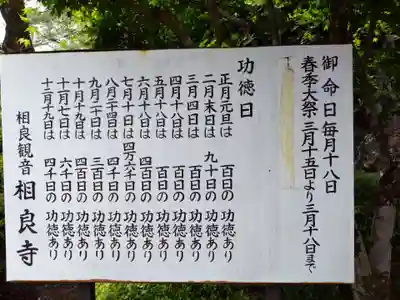 御命日毎月十八日
春季大祭 三月十五日より三月十八日まで
功徳日
正月元旦は 百日の 功徳あり
二月末日は 九十日の 功徳あり
三月四日は 百日の 功徳あり
四月十八日は 百日の 功徳あり
五月十八日は 百日の 功徳あり
六月十八日は 四百日の 功徳あり
七月十日は 四万六千日の 功徳あり
八月二十四日は 四千日の 功徳あり
九月二十日は 三百日の 功徳あり
十月十九日は 四百日の 功徳あり
十一月七日は 六千日の 功徳あり
十二月十九日は 四千日の 功徳あり
相良観音 相良寺